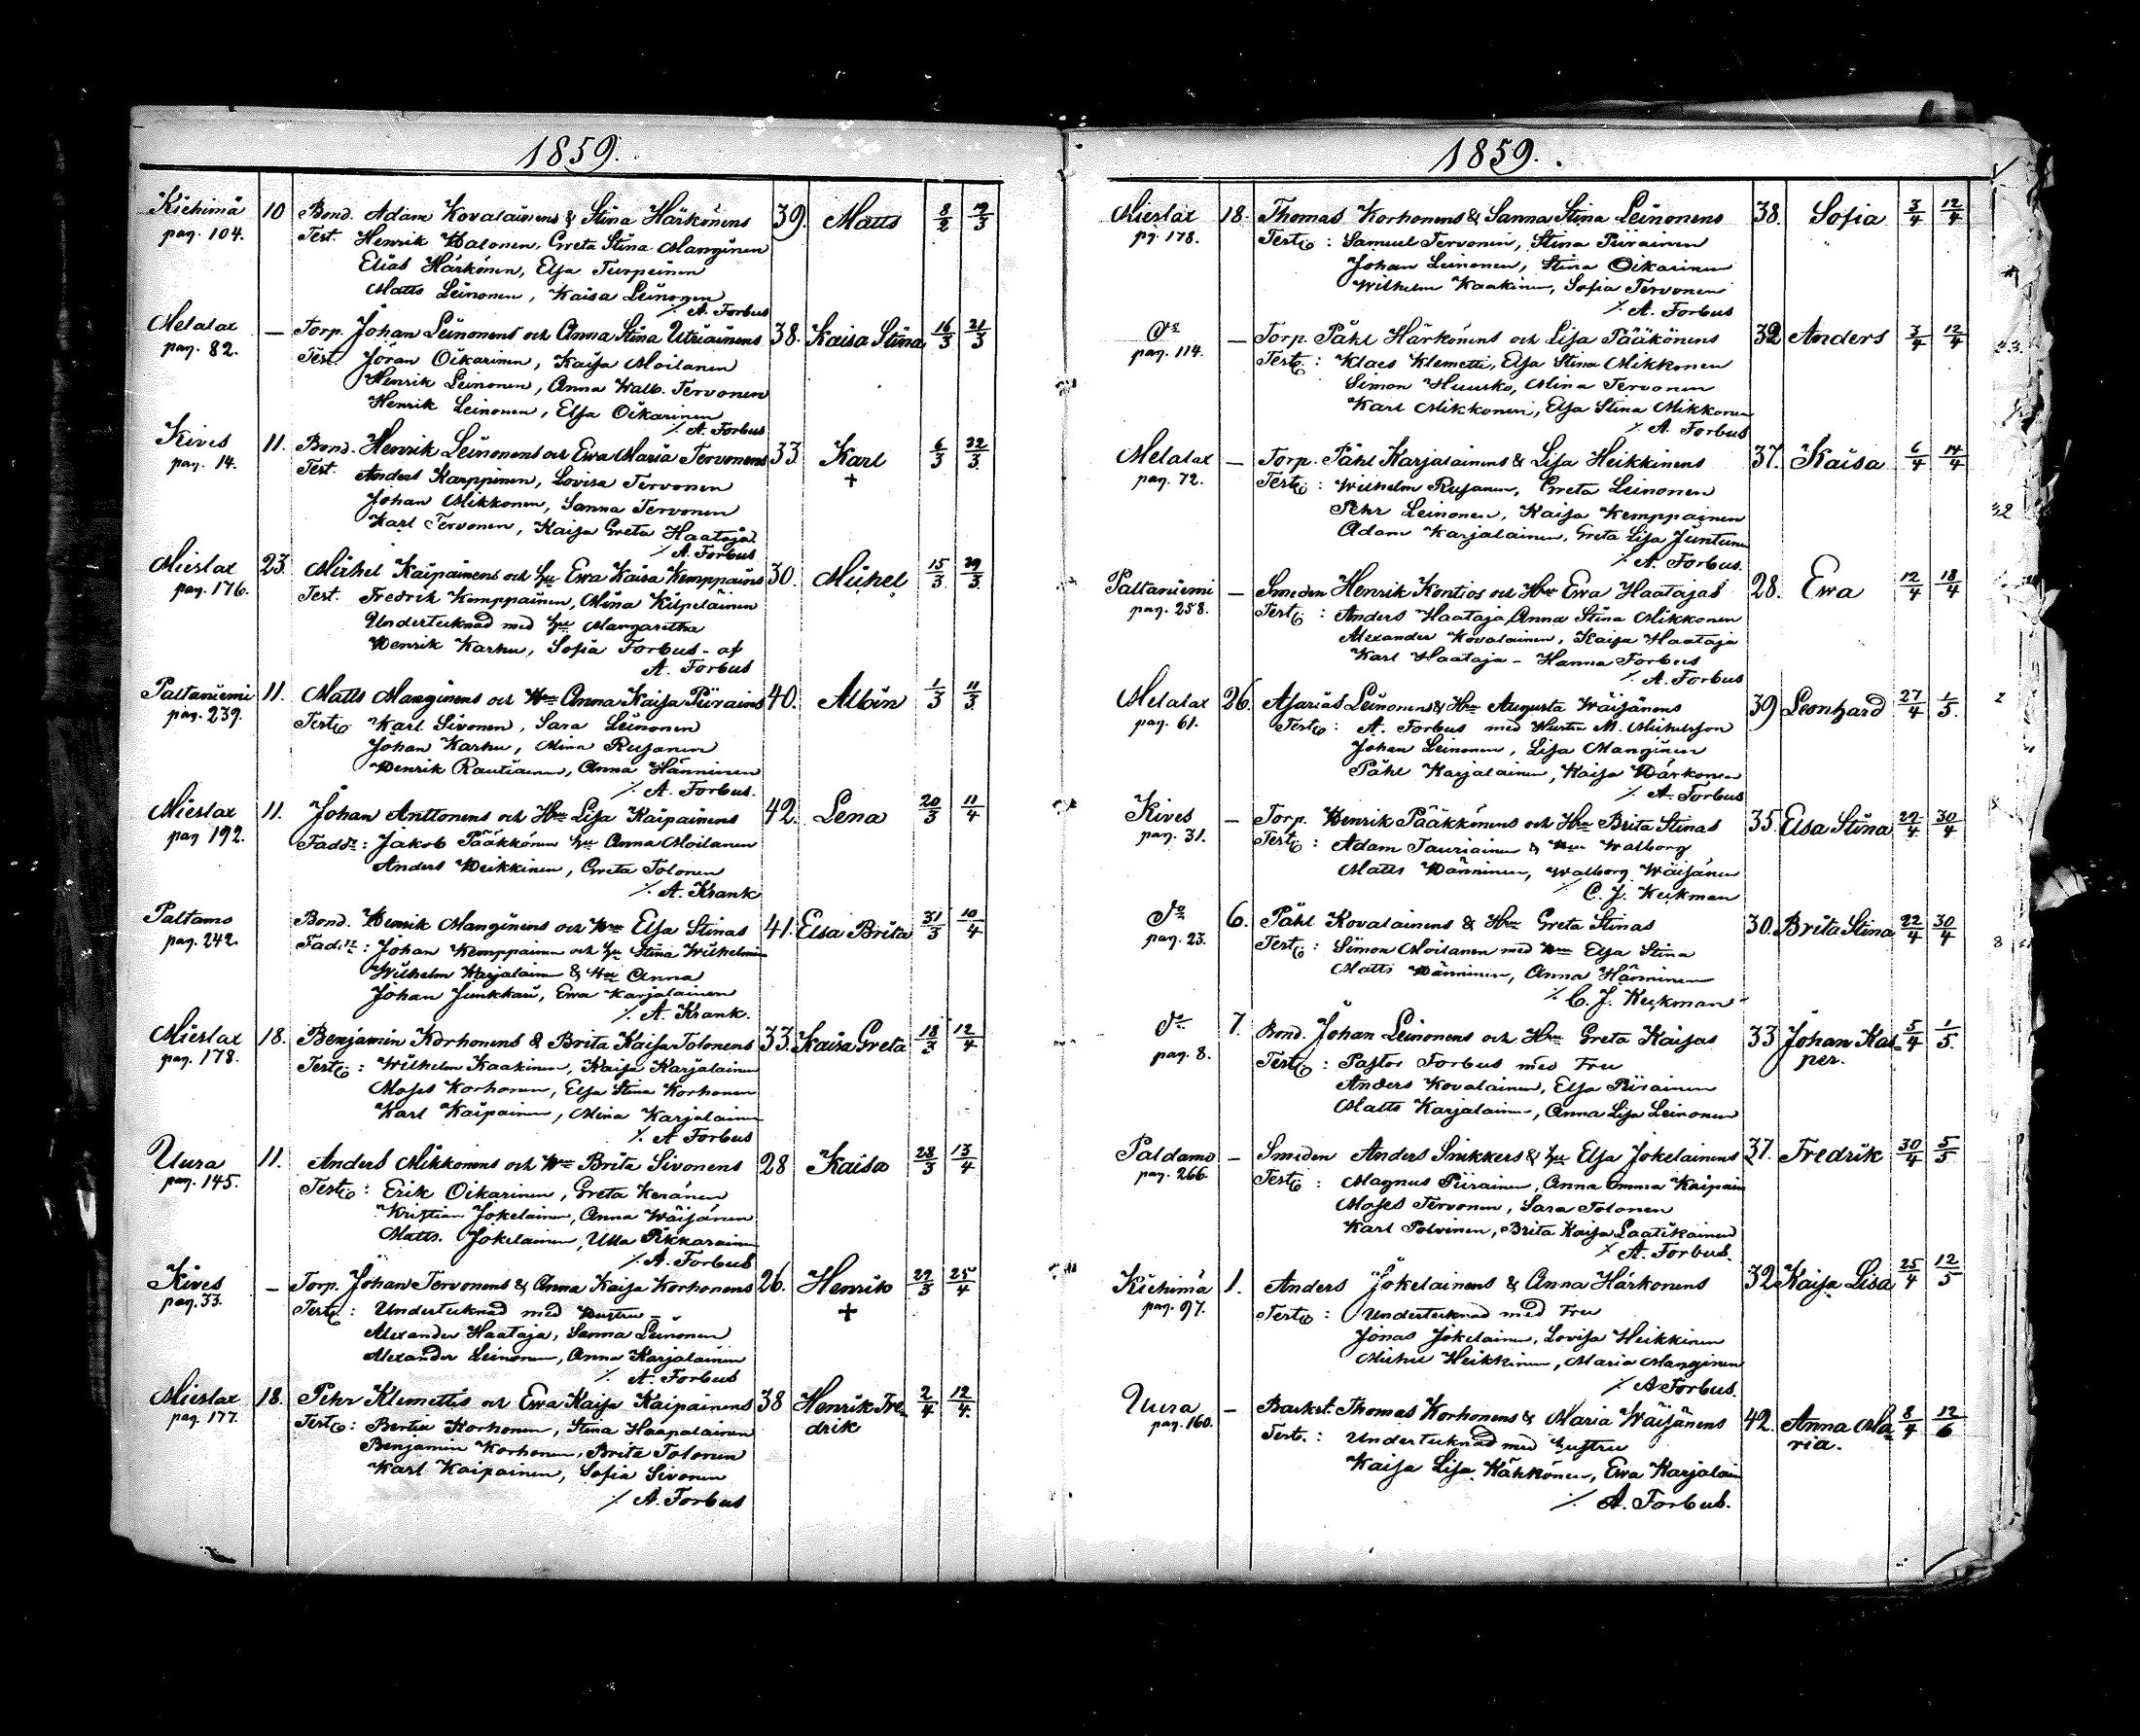 1859.
Kiehimä 10 Bond. Adam Kovalainens & Stina Härkönens 39. Matts 8/2
pag. 104. Test. Henrik Halonen, Greta Stina Manginen
Elias Härkönen, Elsa Turpeinen
Matts Leinonen, Kaisa Leinonen
./. A. Forbus
Melalax — Torp. Johan Leinonens och Anna Stina Utriainens 38. Kaisa Stina 16/3 21/3
pag. 82. Test. Jöran Oikarinen, Kaisa Moilanen
Henrik Leinonen, Anna Walb. Tervonen
Henrik Leinonen, Elsa Oikarinen
./. A. Forbus
Kives 11. Bond. Henrik Leinonens och Ewa Maria Tervonens 33. Karl 6/3 22/3
pag. 14. Test. Anders Karppinen, Lovisa Tervonen +
Johan Mikkonen, Sanna Tervonen
Karl Tervonen, Kaisa Greta Haataja
./. A. Forbus
Mieslax 23. Mickel Kaipainens och Hu Ewa Kaisa Kemppains 30. Mickel 15/3 29/3
pag. 176. Test. Fredrik Kemppainen, Mina Kilpeläinen
Undertecknad med Hu Margaretha
Henrik Karhu, Sofia Forbus - af
A. Forbus
Paltaniemi 11. Matts Manginens och Hru Anna Kaisa Piirains 40. Albin 1/3 11/3
pag. 239. Test: Karl Sivonen, Sara Leinonen
Johan Karhu, Mina Rusanen
Henrik Rautiainen, Anna Hänninen
./. A. Forbus.
Mieslax 11. Johan Anttonens och Hru Lisa Kaipainens 42. Lena 20/3 11/4
pag 192. Faddr: Jakob Pääkkönen Hu Anna Moilanen
Anders Heikkinen, Greta Tolonen
./. A. Krank
Paltamo Bond. Henrik Manginens och Hru Elsa Stinas 41. Elsa Brita 31/3 10/4
pag. 242. Fadd: Johan Kemppainen och Hu Stina Wilhelmina
Wilhelm Karjalainen & Hu Anna
Johan Junkkari, Ewa Karjalainen
./. A. Krank.
Mieslax 18. Benjamin Korhonens & Brita Kaisa Tolonens 33. Kaisa Greta 18/3 12/4
pag. 178. Test: Wilhelm Kaakinen, Kaisa Karjalainen
Moses Korhonen, Elsa Stina Korhonen
Karl Kaipainen, Mina Karjalainen
./. A Forbus
Uura 11. Anders Mikkonens och Hru Brita Sivonens 28 Kaisa 28/3 13/4
pag. 145. Test: Erik Oikarinen, Greta Keränen
Kristian Jokelainen, Anna Wäisänen
Matts. Jokelainen, Ulla Pikkarainen
./. A. Forbus
Kives — Torp. Johan Tervonens & Anna Kaisa Korhonens 26. Henrik 29/3 25/4
pag. 33. Test: Undertecknad med Hustru — +
Alexander Haataja, Sanna Leinonen
Alexander Leinonen, Anna Karjalainen
./. A. Forbus
Mieslax 18. Pehr Klemettis och Ewa Kaisa Kaipainens 38 Henrik Fre- 2/4 12/4.
pag. 177. Test: Bertil Korhonen, Stina Haapalainen drik
Benjamin Korhonen, Brita Tolonen
Karl Kaipainen, Sofia Sivonen
./. A. Forbus
1859.
Mieslax 18. Thomas Korhonens & Sanna Stina Leinonens 38. Sofia 3/4 12/4
pg. 178. Test: Samuel Tervonen, Stina Piirainen
Johan Leinonen, Stina Oikarinen
Wilhelm Kaakinen, Sofia Tervonen
./. A. Forbus
Do — Torp. Påhl Härkönens och Lisa Pääkönens 32 Anders 3/4 12/4
pag. 114. Test: Klaes Klemetti, Elsa Stina Mikkonen
Simon Huusko, Mina Tervonen
Karl Mikkonen, Elsa Stina Mikkonen
./. A. Forbus
Melalax — Torp. Påhl Karjalainens & Lisa Heikkinens 37. Kaisa 6/4 14/4
pag. 72. Test: Wilhelm Rusanen, Greta Leinonen
Pehr Leinonen, Kaisa Kemppainen
Adam Karjalainen, Greta Lisa Juntunen
./. A. Forbus.
Paltaniemi — Smeden Henrik Kontios och Hru Ewa Haatajas 28. Ewa 12/4 18/4
pag. 258. Test: Anders Haataja, Anna Stina Mikkonen
Alexander Kovalainen, Kaisa Haataja
Karl Haataja - Hanna Forbus
./. A. Forbus
Melalax 26. Asarias Leinonens & Hru Augusta Wäisänens 39 Leonhard 27/4 1/5.
pag. 61. Test: A. Forbus med Hustru M. Michelsson
Johan Leinonen, Lisa Manginen
Påhl Karjalainen, Kaisa Härkönen
./. A. Forbus
Kives — Torp. Henrik Pääkkönens och Hru Brita Stinas 35. Elsa Stina 29/4 30/4
pag. 31. Test: Adam Tauriainen & Hru Walborg
Matts Hänninen, Walborg Wäisänen
./. C. J. Keckman
Do 6. Påhl Kovalainens & Hru Greta Stinas 30. Brita Stina 22/4 30/4
pag. 23. Test: Simon Moilanen med Hru Elsa Stina
Matts Hänninen, Anna Hänninen
./. C. J. Keckman
Do 7. Bond. Johan Leinonens och Hru Greta Kaisas 33 Johan Kas- 5/4 1/5.
pag. 8. Test: Pastor Forbus med Fru per.
Anders Kovalainen, Elsa Piirainen
Matts Karjalainen, Anna Lisa Leinonen
Paldamo — Smeden Anders Snikkers & Hu Elsa Jokelainens 37. Fredrik 30/4 5/5
pag. 266. Test: Magnus Piirainen, Anna Emma Kaipain
Moses Tervonen, Sara Tolonen
Karl Polvinen, Brita Kaisa Laatikainen
./. A. Forbus.
Kiehimä 1. Anders Jokelainens & Anna Härkonens 32 Kaisa Lisa 25/4 12/5
pag. 97. Test: Undertecknad med Fru
Jonas Jokelainen, Lovisa Heikkinen
Michel Heikkinen, Maria Manginen
./. A Forbus.
Uura — Backst. Thomas Korhonens & Maria Wäisänens 42. Anna Ma- 8/4 12/6
pag. 160. Test.: Undertecknad med Hustru ria.
Kaisa Lisa Kähkönen, Ewa Karjalain
./. A. Forbus.